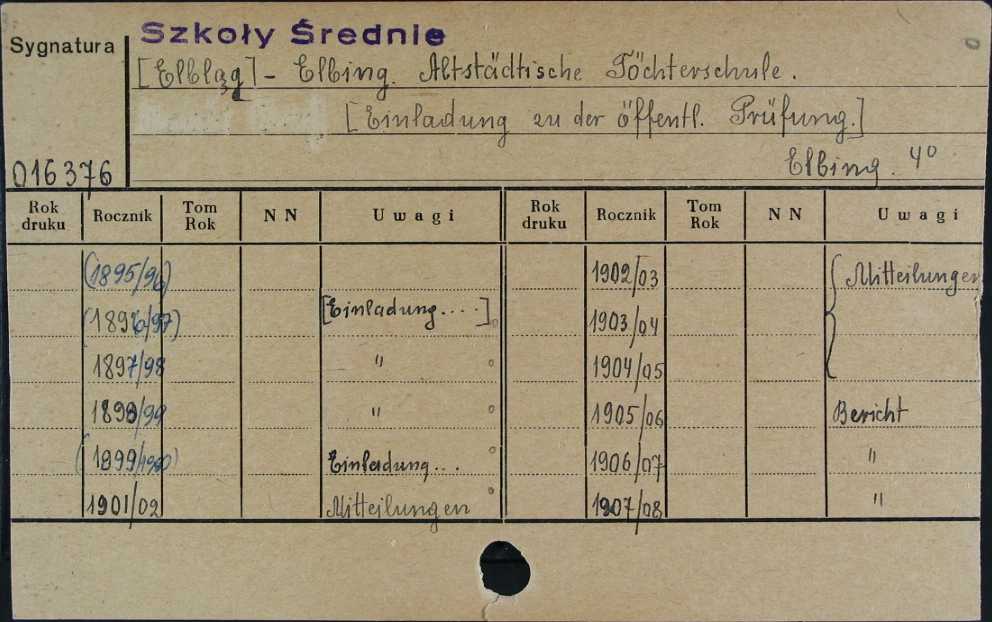 Szkoły Średnie
Sygnatura
[Elbląg] - Elbing. Altstädtische Töchterschule.
[Einladung zu der öffentl. Prüfung.]
Elbing. 4°
016376
Rok druku Rocznik Tom Rok N N Uwagi Rok druku Rocznik Tom Rok N N Uwagi
(1895/96) 1902/03 { Mitteilungen
(1896/97) [Einladung....] 1903/04
1897/98 " 1904/05
1898/99 " 1905/06 Bericht
(1899/1900) Einladung... 1906/07 "
1901/02 Mitteilungen 1907/08 "